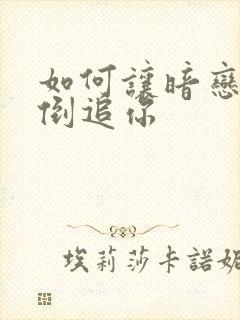 如何讓暗戀
倒追你
埃莉莎卡諾妮